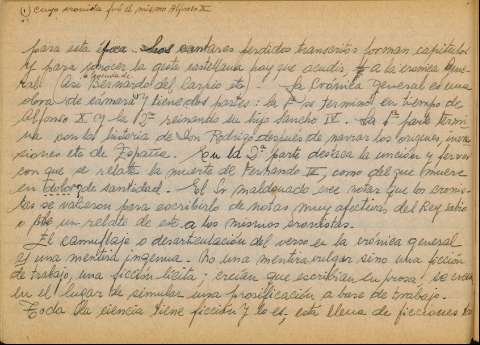 (1) cuyo cronista fué el mismo Alfonso X
para esta época. Los cantares perdidos transcritos forman capítulos
y para conocer la gesta castellana hay que acudir, a la cronica Gene-
ral: (Asi la leyenda de Bernardo del Carpio etc). La Crónica General es una
obra de cámara y tiene dos partes: la 1ª se termino en tiempo de
Alfonso X y la 2ª reinando su hijo Sancho IV. La 1ª parte termi
na con la historia de Don Rodrigo después de narrar los origenes, inva
siones etc de España. En la 2ª parte destaca la unción y fervor
con que se relata la muerte de Fernando III, como del que muere
en dolor de santidad. El Sr maldonado cree notar que los cronis-
tas se valieron para escribirlo de notas muy afectivas del Rey sabio
o fué un relato de este a los mismos cronistas.
El camuflaje o desarticulación del verso en la cronica general
es una mentira ingenua. No una mentira vulgar sino una ficción
de trabajo, una ficción licita; creian que escribian en prosa,
en el lugar de simular una prosificación a base de trabajo.
Toda la ciencia tiene ficción y lo es, esta llena de ficciones